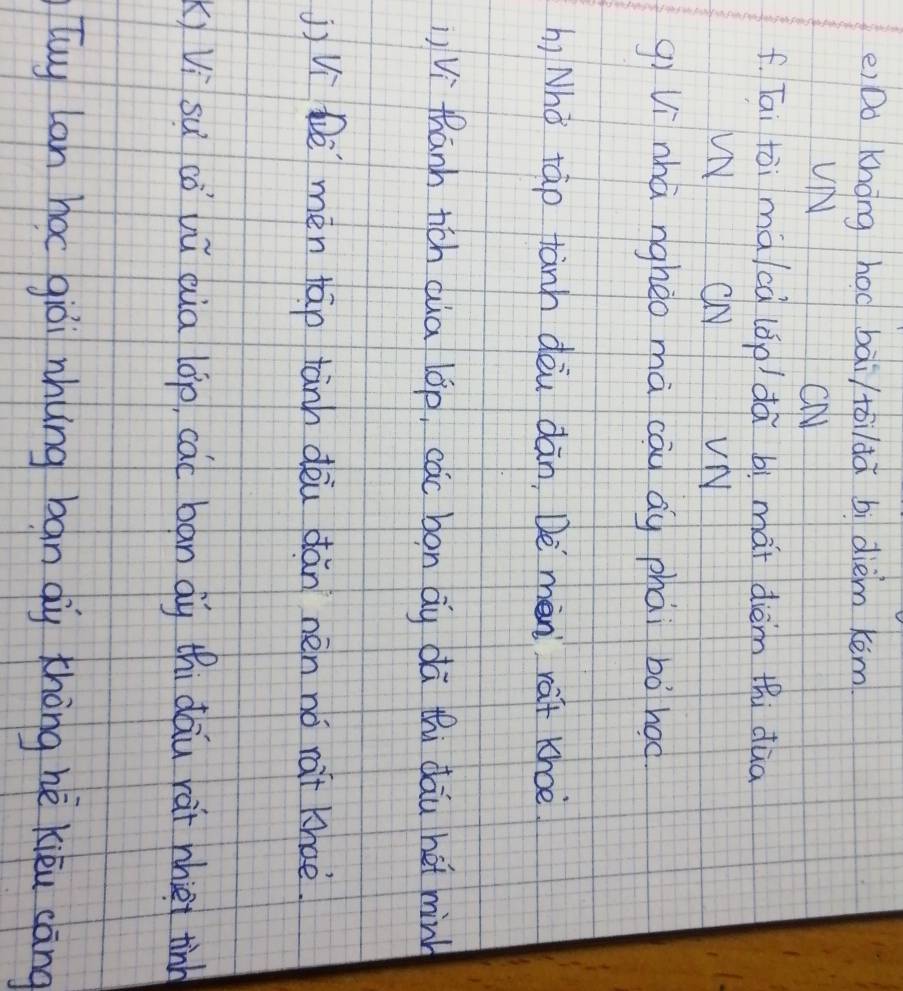 e) Do không học bài/tôi/đã bị điểm kém.
VN CN
f. Tại tôi mà/cả lớp/đã bị mất điểm thi đua
VN CN VN
g) Vì nhà nghèo mà cậu ấy phải bỏ học.
h) Nhờ tập tành đều đặn, Dế mèn rất khoẻ.
i) Vì thành tích của lớp, các bạn ấy đã thi đấu hết mình
j) Vì Dế mèn tập tành đều đặn nên nó rất khoẻ.
k) Vì sự cổ vũ của lớp, các bạn ấy thi đấu rất nhiệt tình
) Tuy Lan học giỏi nhưng bạn ấy không hề kiêu căng